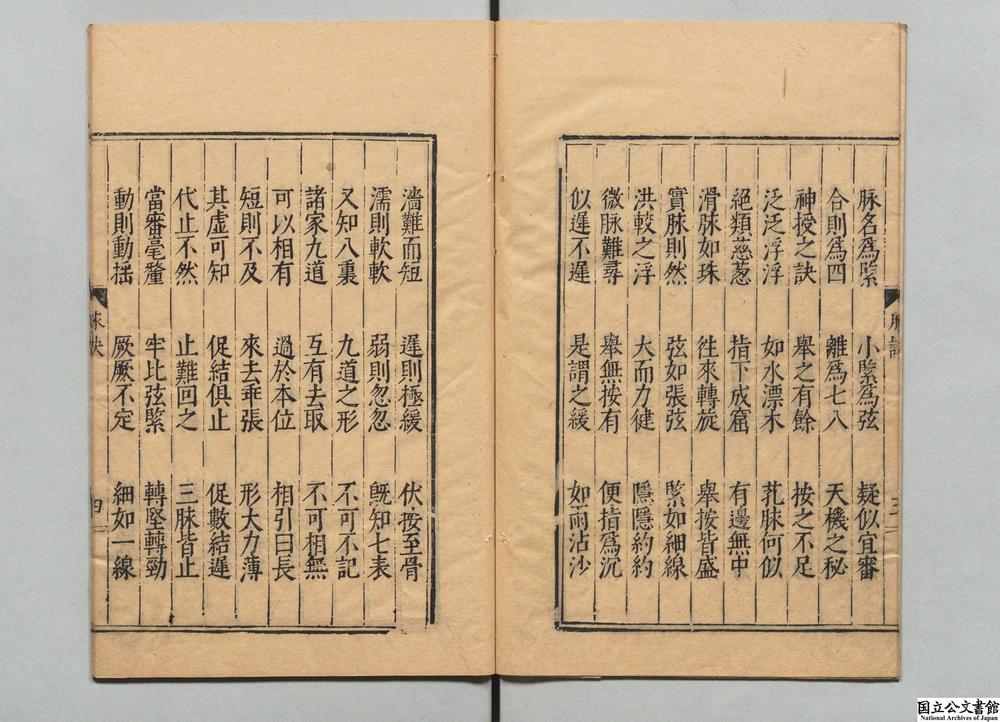 脉名爲緊 小緊爲弦 疑似宜審
合則爲四 離爲七八 天機之秘
神授之訣 舉之有餘 按之不足
泛泛浮浮 如水漂木 芤脉何似
絕類慈葱 指下成窟 有邊無中
滑脉如珠 徃來轉旋 舉按皆盛
實脉則然 弦如張弦 緊如細線
洪較之浮 大而力健 隱隱約約
微脉難尋 舉無按有 便指爲沉
似遲不遲 是謂之緩 如雨沾沙
濇難而短 遲則極緩 伏按至骨
濡則軟軟 弱則忽忽 旣知七表
又知八裏 九道之形 不可不記
諸家九道 互有去取 不可相無
可以相有 過於本位 相引曰長
短則不及 來去乖張 形大力薄
其虛可知 促結俱止 促數結遲
代止不然 止難回之 三脉皆止
當審毫釐 牢比弦緊 轉堅轉勁
動則動搖 厥厥不定 細如一線
脉訣
四
国立公文書館
National Archives of Japan